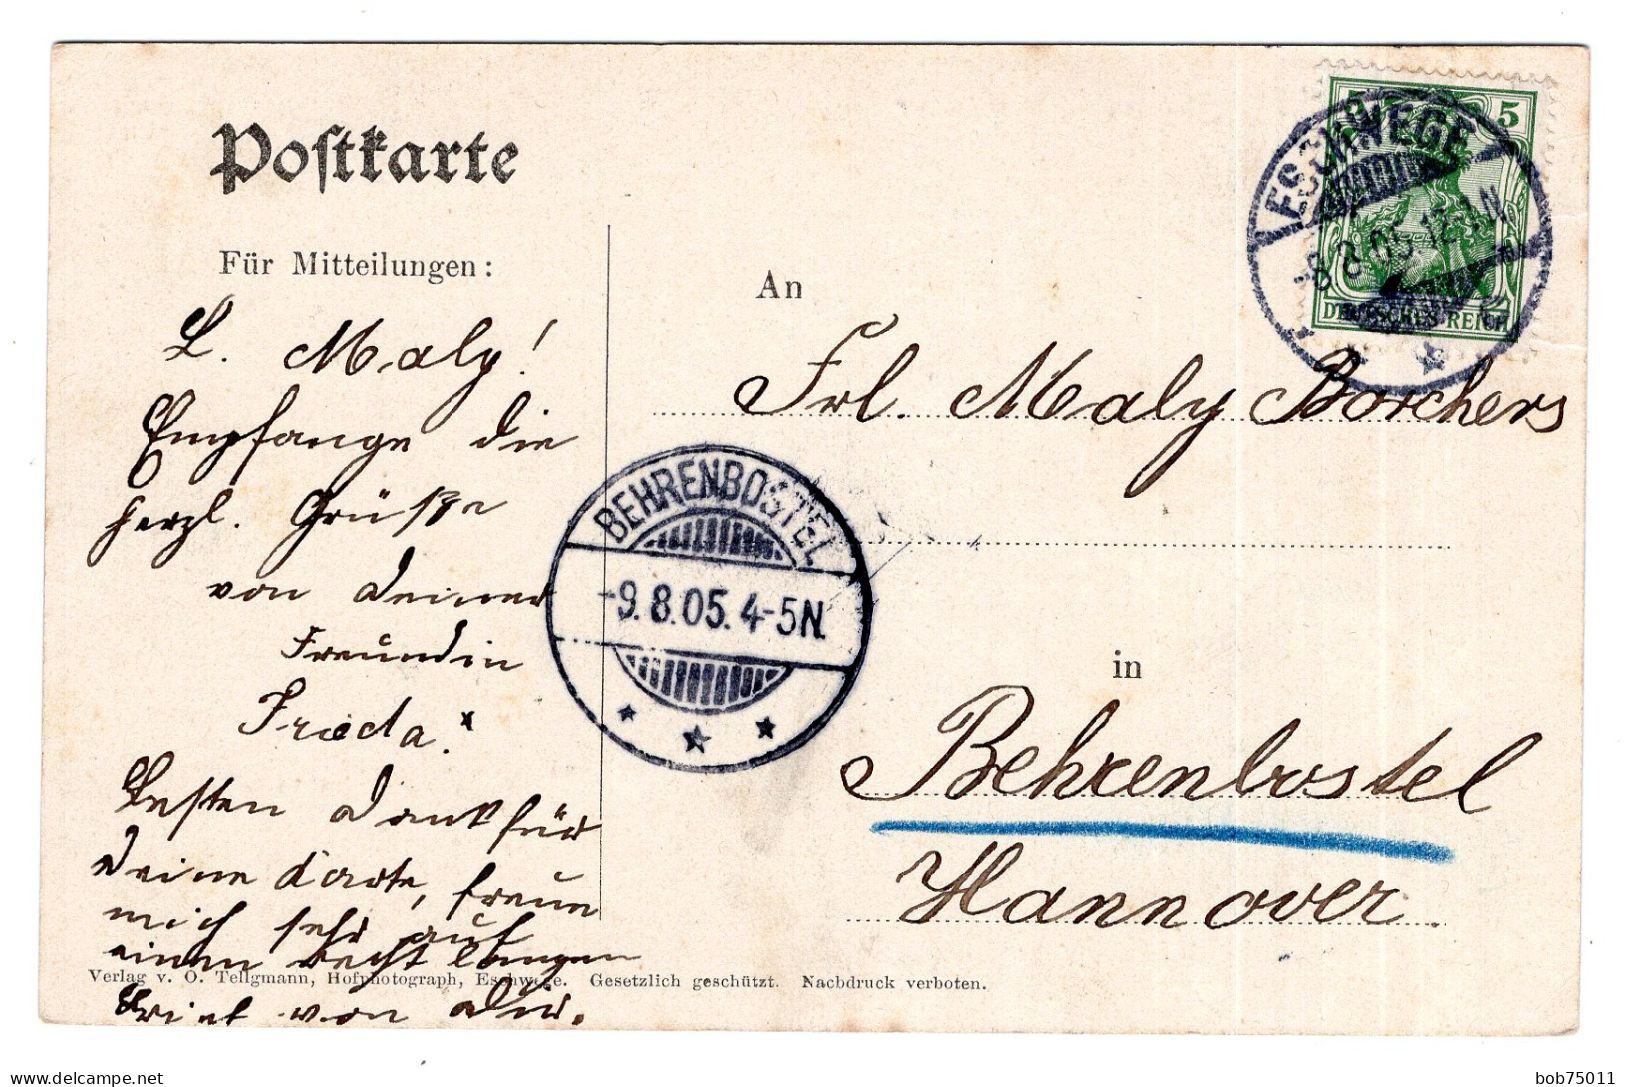 Postkarte
Für Mitteilungen:
L. Maly!
Empfange die
herzl. Grüße
von deiner
Freundin
Frieda.
Besten Dank für
deine Karte, freue
mich sehr auf
einen recht langen
Brief von dir.
An
Frl. Maly Borchers
in
Behrenbostel
Hannover.
ESCHWEGE
-8.8.05.12-1N
DEUTSCHES REICH
5
BEHRENBOSTEL
-9.8.05.4-5N.
Verlag v. O. Tellgmann, Hofphotograph, Eschwege. Gesetzlich geschützt. Nachdruck verboten.
delcampe.net
bob75011